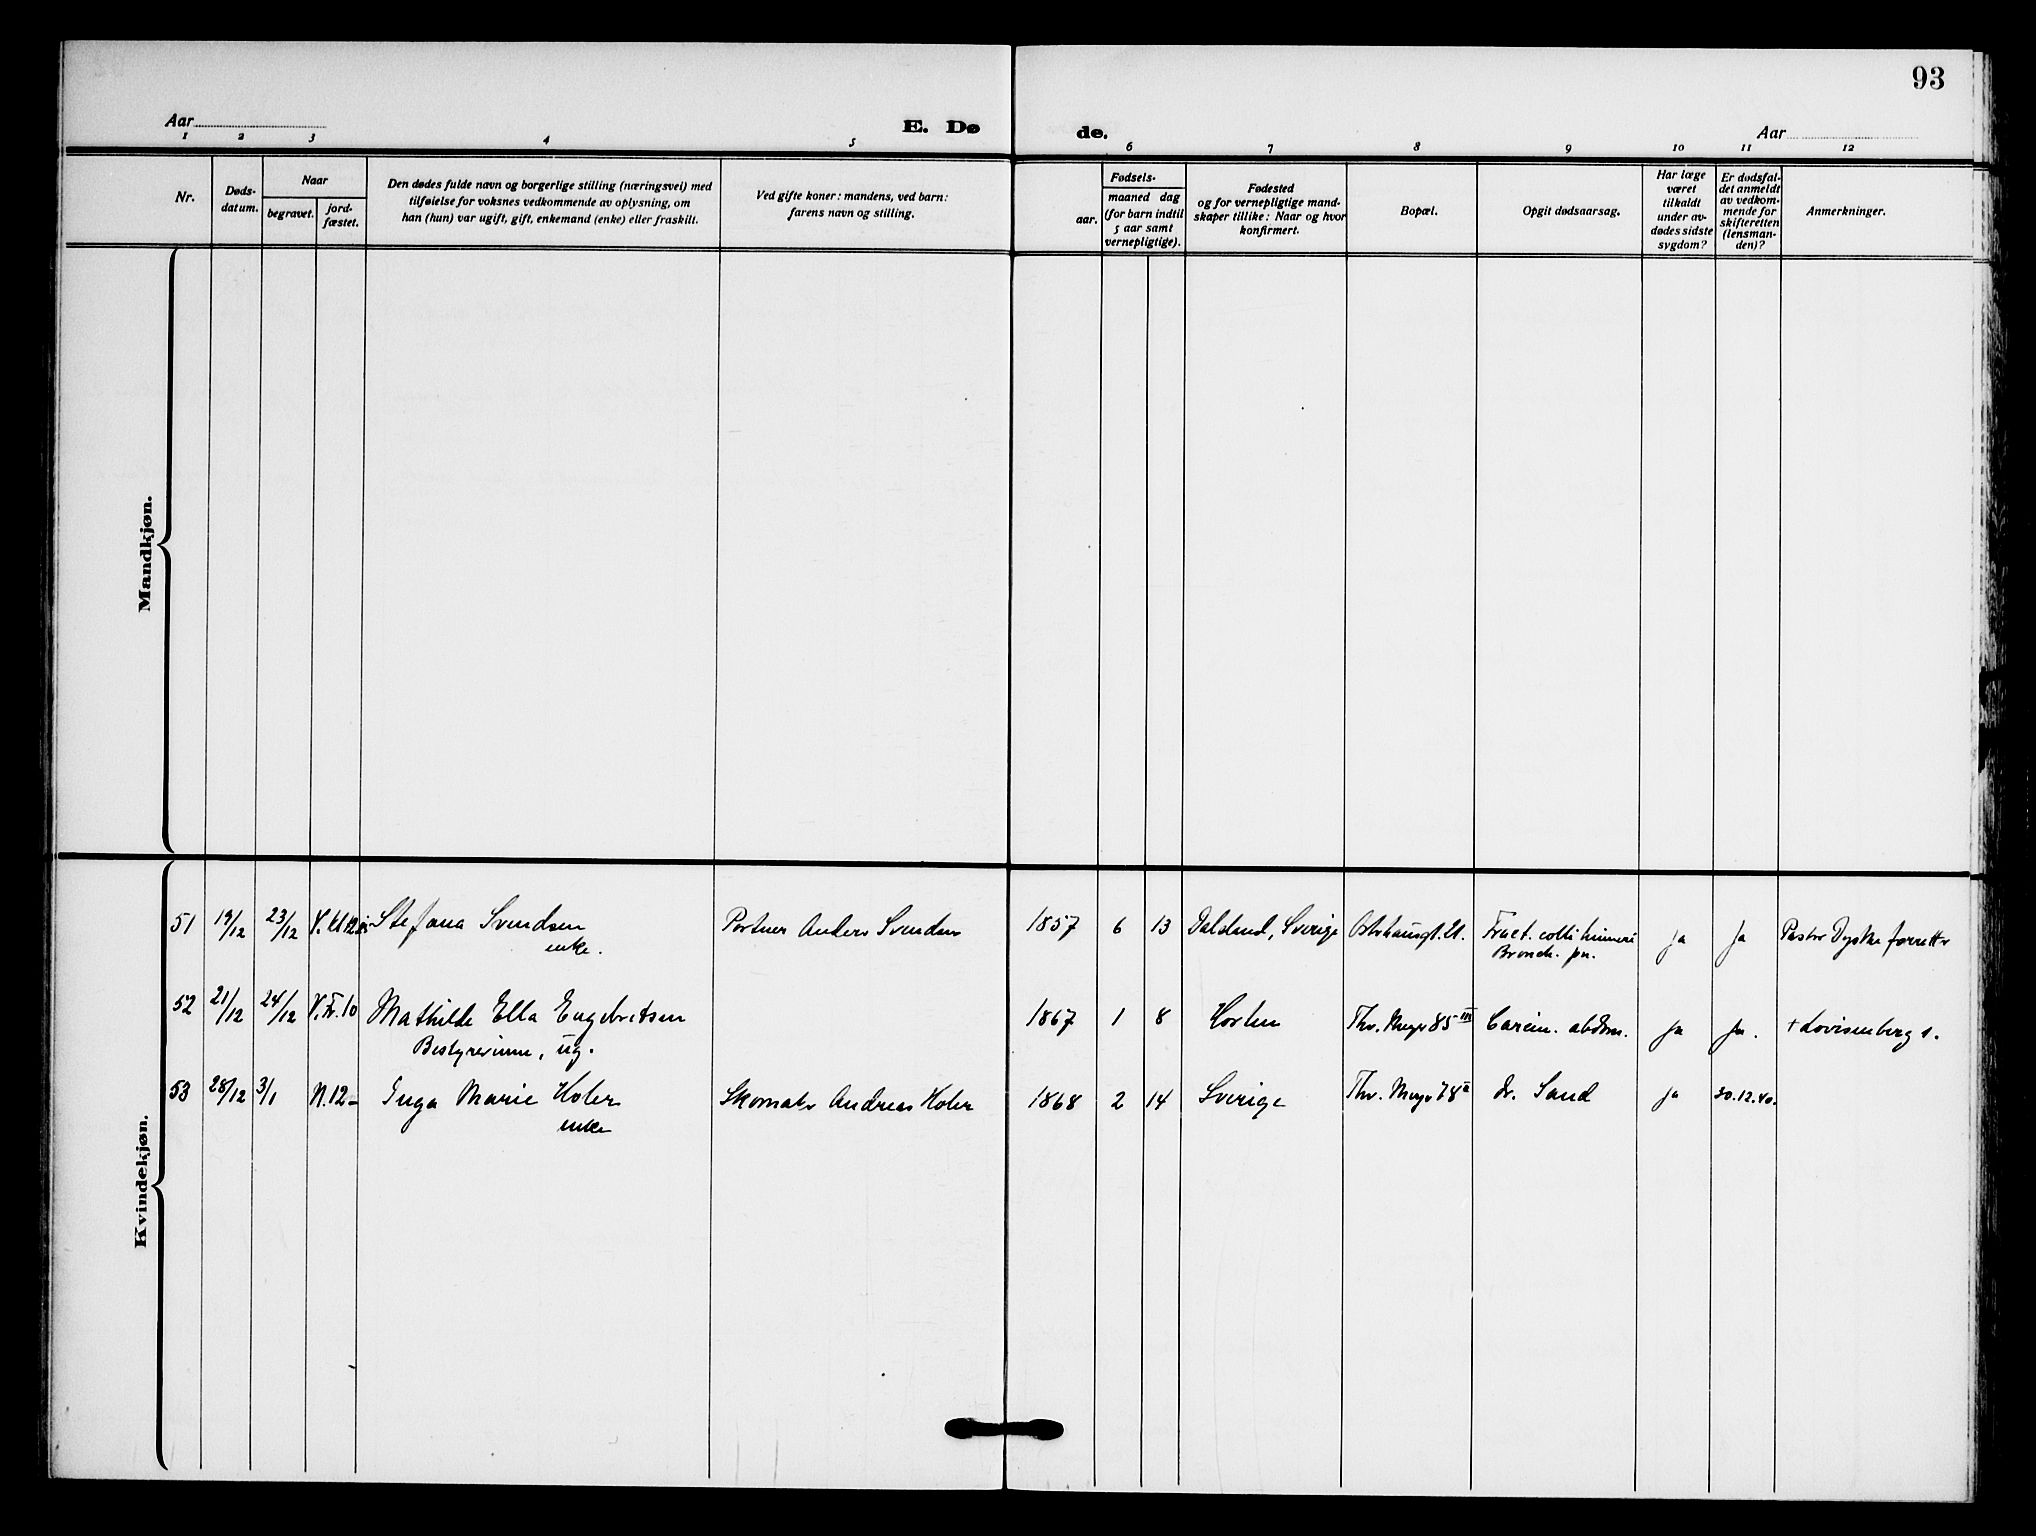 93
Aar
E. Dø
de.
Aar
1 2 3 4 5 6 7 8 9 10 11 12
Nr.
Døds-
datum.
Naar
begravet.
jord-
fæstet.
Den dødes fulde navn og borgerlige stilling (næringsvei) med
tilføielse for voksnes vedkommende av oplysning, om
han (hun) var ugift, gift, enkemand (enke) eller fraskilt.
Ved gifte koner: mandens, ved barn:
farens navn og stilling.
Fødsels-
aar.
maaned dag
(for barn indtil
5 aar samt
vernepligtige).
Fødested
og for vernepligtige mand-
skaper tillike: Naar og hvor
konfirmert.
Bopæl.
Opgit dødsaarsag.
Har læge
været
tilkaldt
under av-
dødes sidste
sygdom?
Er dødsfal-
det anmeldt
av vedkom-
mende for
skifteretten
(lensman-
den)?
Anmerkninger.
Mandkjøn.
Kvindekjøn.
51 19/12 23/12 V. kl 12 Stefana Svendsen Portner Anders Svendsen 1857 6 13 Dalsland, Sverige Fract. colli humeri ja ja Pastor Dyste forretter
enke. Bronch. pn.
52 21/12 24/12 V. Fr. 10 Mathilde Ella Engebretsen 1867 1 8 Horten Thv. Meyer 85 III Carcin. abdom. ja ja. + Lovisenberg s.
Bestyrerinne, ug.
53 28/12 3/1 N. 12- Inga Marie Holer Skomaker Andreas Holer 1868 2 14 Sverige Thv. Meyer 78 II dr. Sand ja 30.12.40.
enke